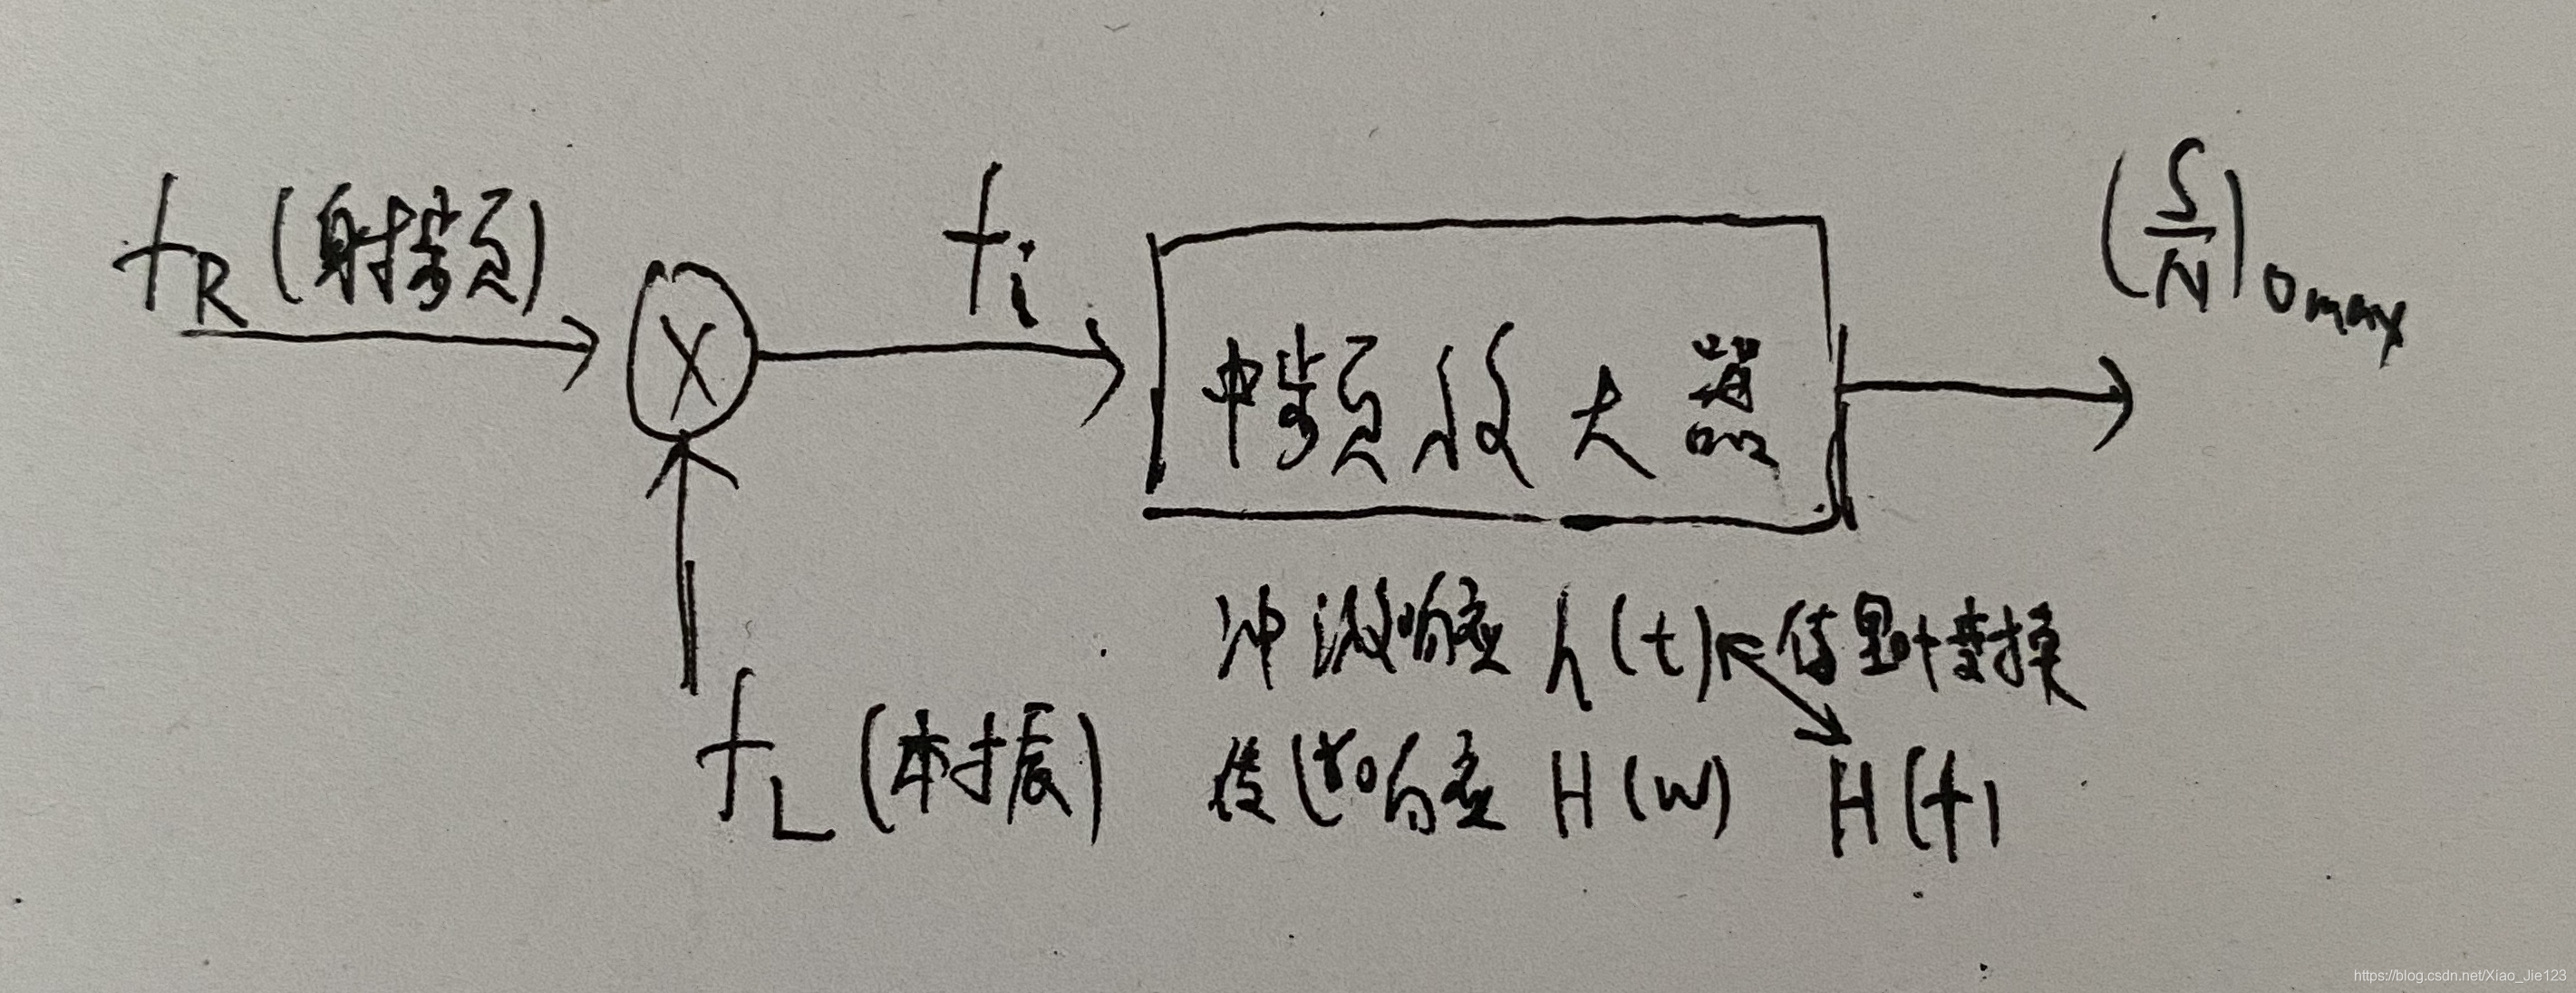 f_R (射频)
f_i
(S/N)_omax
中频放大器
f_L (本振)
冲激响应 h(t) 傅里叶变换
传递响应 H(w) H(f)
https://blog.csdn.net/Xiao_Jie123